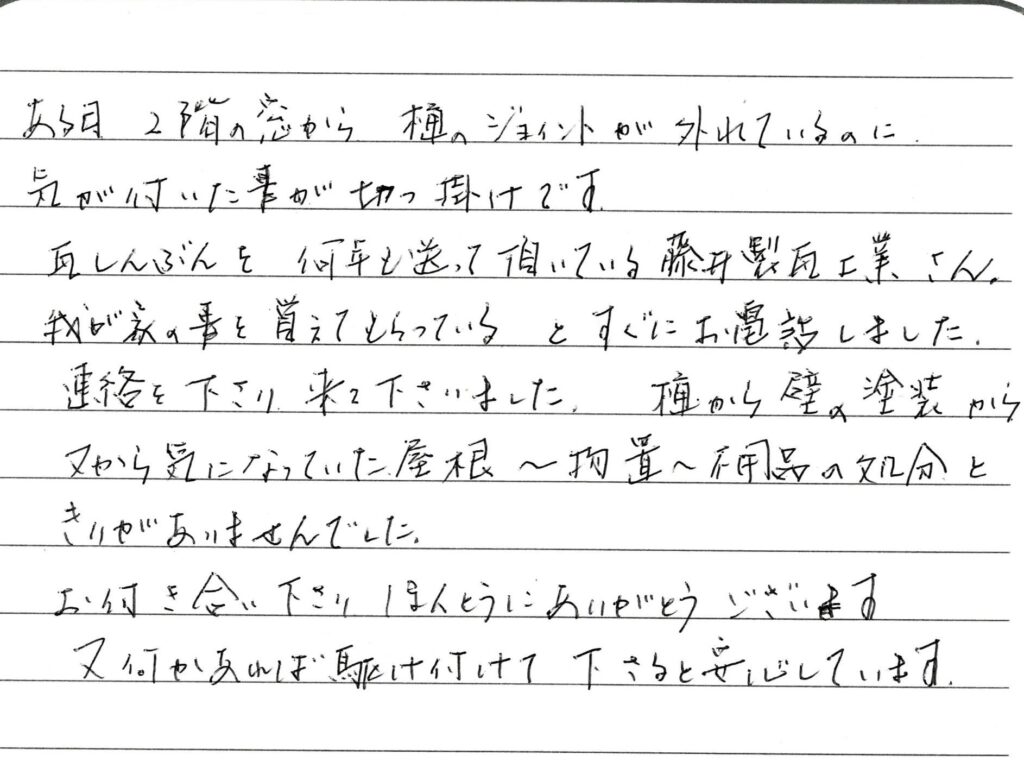 ある日 2階の窓から 樋のジョイントが 外れているのに
気が付いた事が切っ掛けです
瓦しんぶんを 何年も送って頂いている藤井製瓦工業さん。
我が家の事を覚えてもらっている とすぐにお電話しました。
連絡を下さり 来て下さいました。 樋から 壁の塗装から
又から気になっていた屋根〜物置〜不用品の処分と
きりがありませんでした。
お付き合い下さり ほんとうにありがとう ございます
又何かあれば駆け付けて 下さると安心しています。